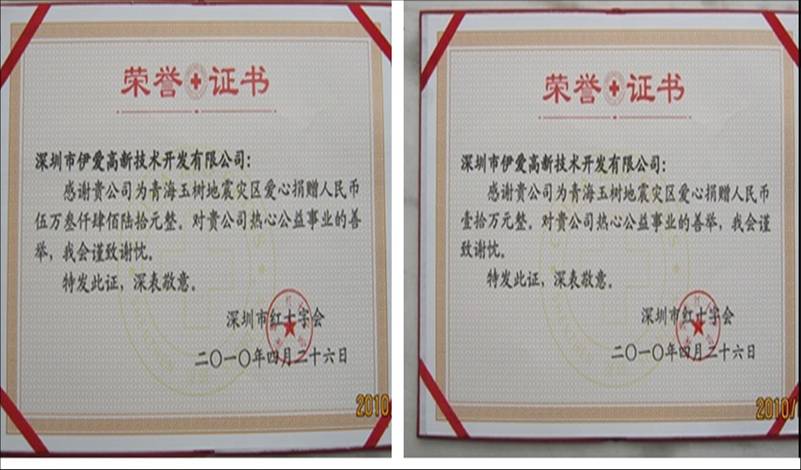 荣誉证书
深圳市伊爱高新技术开发有限公司：
感谢贵公司为青海玉树地震灾区爱心捐赠人民币
伍万叁仟肆佰陆拾元整。对贵公司热心公益事业的善
举，我会谨致谢忱。
特发此证，深表敬意。
深圳市红十字会
二〇一〇年四月二十六日
2010
荣誉证书
深圳市伊爱高新技术开发有限公司：
感谢贵公司为青海玉树地震灾区爱心捐赠人民币
壹拾万元整。对贵公司热心公益事业的善举，我会谨
致谢忱。
特发此证，深表敬意。
深圳市红十字会
二〇一〇年四月二十六日
2010/